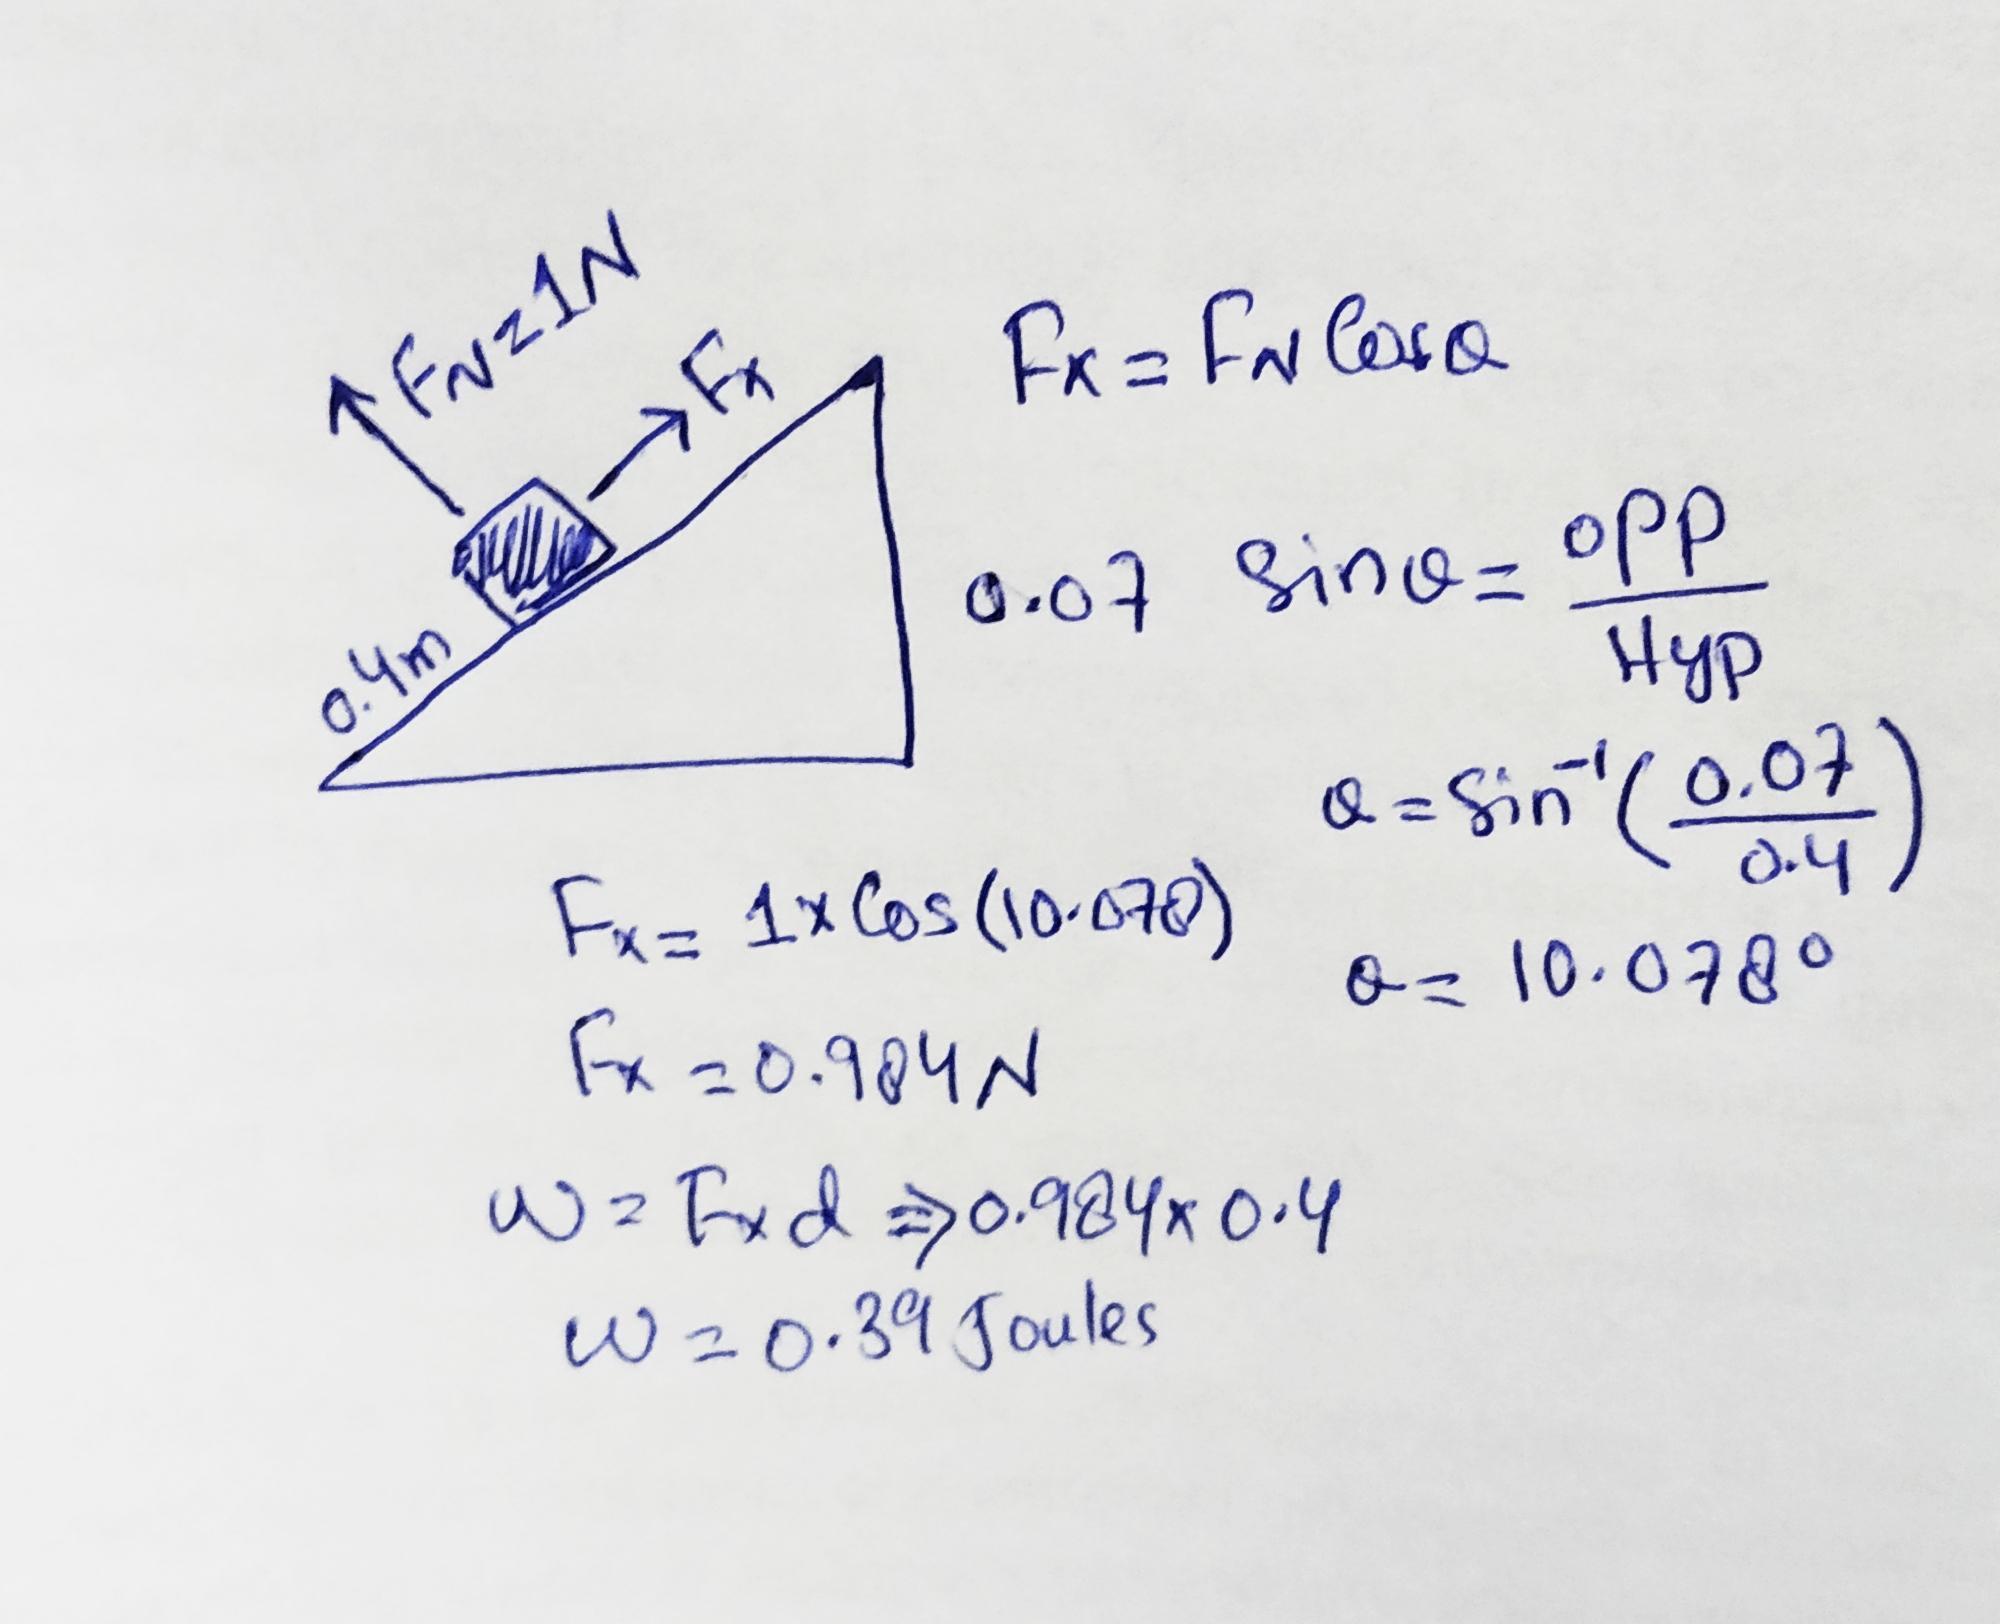 FN=1N
Fx
0.4m
0.07
Fx = FN Cosθ
Sinθ = opp
Hyp
θ = Sin⁻¹ (0.07
0.4)
θ = 10.078°
Fx = 1x Cos (10.078)
Fx = 0.984N
W = Fxd ⇒ 0.984x0.4
W = 0.39 Joules